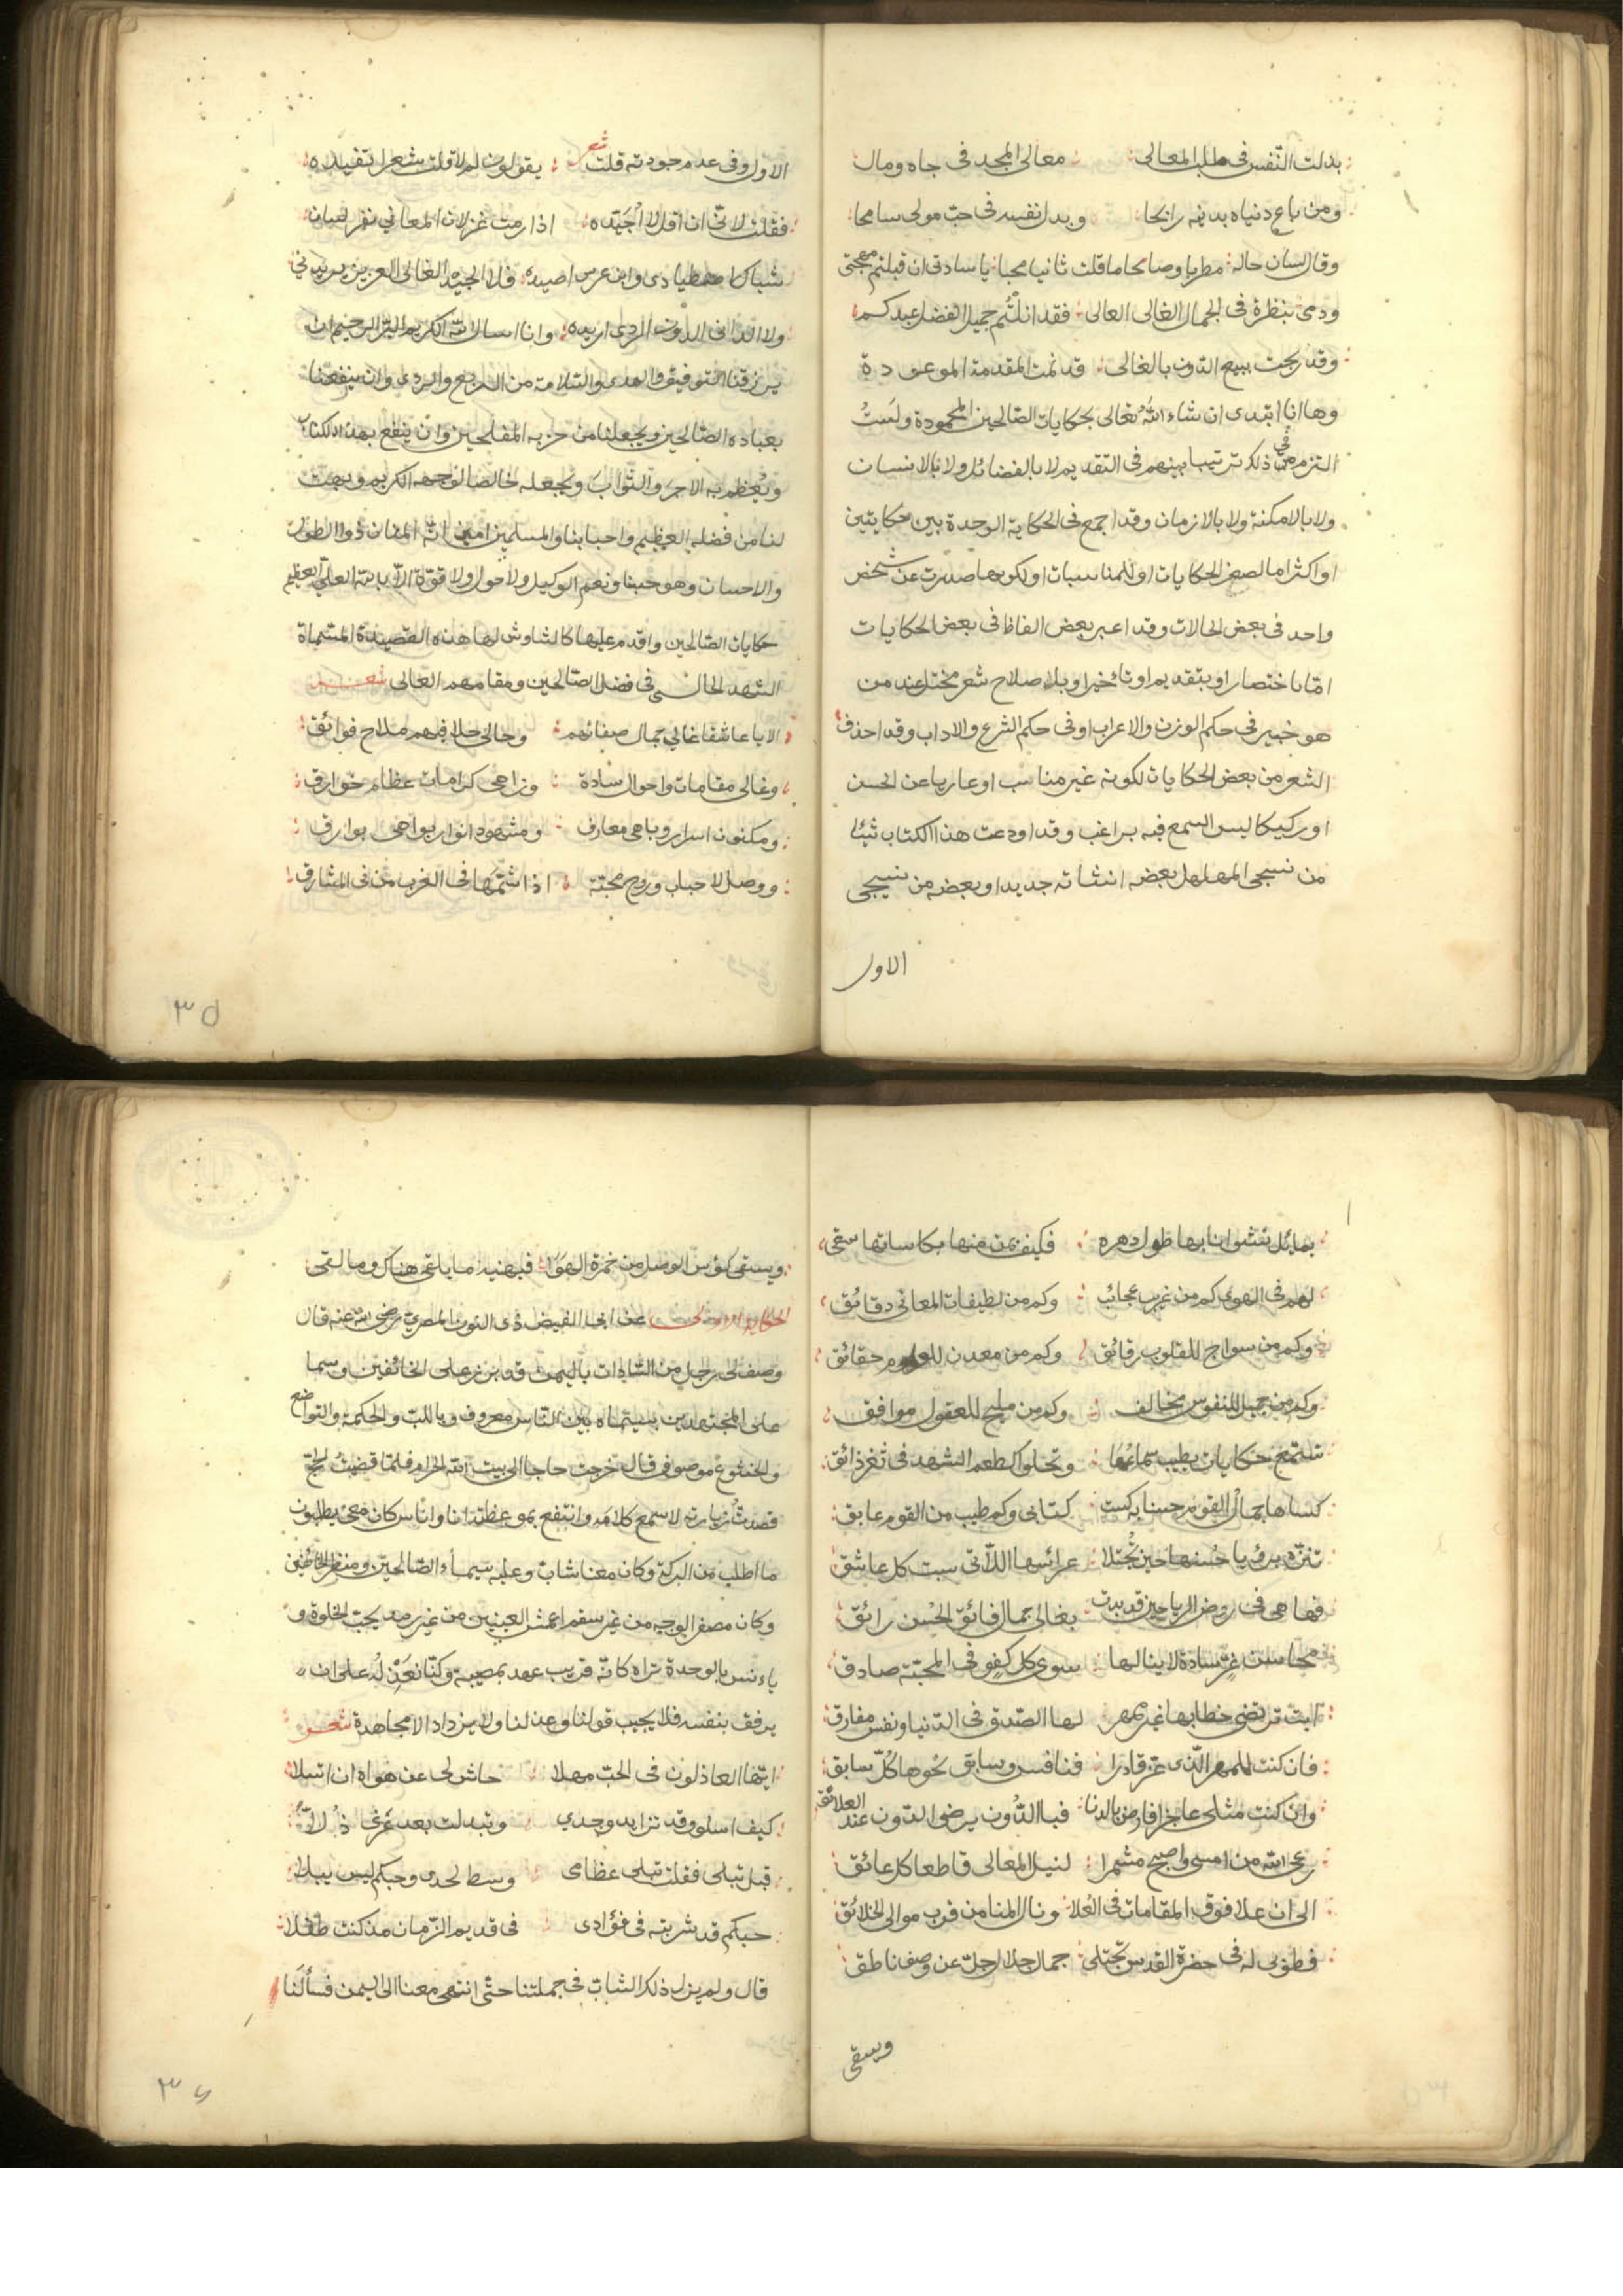 بذلت النفس فى طلب المعالى معالى المجد فى جاه ومال
ومن باع دنياه بدينه رابحا وبدل نفسه فى حب مولى سامحا
وقال لسان حاله مطربا وصامحا ما قلت ثانيا مجبا يا سادتى ان قبلتم مهجتى
ودمى بنظرة فى الجمال الغالى العالى فقد انلتم جميل الفضل عبدكم
وقد ربحت ببيع الدون بالغالى قد تمت المقدمة الموعودة
وها انا ابتدى ان شاء الله تعالى بحكايات الصالحين المحمودة ولست
التزم فى ذلك ترتيبا بينهم فى التقديم لا بالفضائل ولا بالانسان
ولا بالامكنة ولا بالازمان وقد اجمع فى الحكاية الوحدة بين حكايتين
او اكثر اما لصغر الحكايات او للمناسبات او لكونها صدرت عن شخص
واحد فى بعض الحالات وقد اعبر بعض الفاظ فى بعض الحكايات
اما باختصار او بتقديم او تاخير او بلاصلاح شعر مختل عند من
هو خبير فى حكم الوزن والاعراب او فى حكم الشرع والاداب وقد احذف
الشعر من بعض الحكايات لكونه غير مناسب او عاريا عن الحسن
او ركيكا ليس السمع فيه براغب وقد اودعت هذا الكتاب شيئا
من نسجى المهلهل بعضه انشاته جديدا وبعضه من نسيجى
الاول
الاول وفى عدم جودته قلت شعر يقولون لم لا قلت شعرا تفيده
فقلت لانى ان اقل لا اجيده اذا رمت غزلان المعانى نفر لسان
شباك اصطيادى وابن عرس اصيده فلا الجيد الغالى العزيز يريدنى
ولا الدانى الدون الردى اريده وانا اسال الله الكريم البر الرحيم ان
يرزقنا التوفيق والهدى والسلامة من الزيغ والردى وان ينفعنا
بعباده الصالحين ويجعلنا من حزبه المفلحين وان ينفع بهذا الكتاب
ويعظم به الاجر والثواب ويجعله خالصا لوجهه الكريم ويهب
لنا من فضله العظيم واحبابنا والمسلمين امين انه المنان ذو الطول
والاحسان وهو حسبنا ونعم الوكيل ولا حول ولا قوة الا بالله العلى العظيم
حكايات الصالحين واقدم عليها كالشاوش لها هذه القصيدة المسماة
الشهد الحالى فى فضل الصالحين ومقامهم العالى شعر
الا يا عاشقا غالى جمال صفاتهم وحالى حلا فيهم ملاح فوائق
وغالى مقامات واحوال سادة وزاهى كرامات عظام خوارق
ومكنون اسرار وباهى معارف ومشهود انوار بواهى بوارق
ووصل لاحباب وروح محبة اذا شمها فى الغرب من فى المشارق
٣٥
بمائل نشوانا بها طول دهره فكيف بمن منها بكاساتها سقى
لهم فى الهوى كم من غريب عجائب وكم من لطيفات المعانى دقائق
وكم من سواج للقلوب رقائق وكم من معدن للعلوم حقائق
وكم من جميل للنفوس مخالف وكم من مليح للعقول موافق
تستمع حكايات يطيب سماعها وتحلو كطعم الشهد فى ثغر ذائق
كساها جمال القوم حسنا به كست كتابى وكم طيب من القوم عابق
تنزه برؤيا حسنها حين تجتلا عرائسها اللاتى سبت كل عاشق
فها هى فى روض الرياحين قد بدت بغالى جمال فائق الحسن رائق
محاسن غر سادة لا ينالها سوى كل كفو فى المحبة صادق
ابت ترتضى خطابها غير مهر لها الصدق فى الدنيا ونفس مفارق
فان كنت للمهر الذى عز قادرا فنافس وسابق نحوها كل سابق
وان كنت مثلى عاجزا فارض بالدنا فبالدون يرضى الدون عند العلائق
رعى الله من امسى واصبح مشمرا لنيل المعالى قاطعا كل عائق
الى ان علا فوق المقامات فى العلا ونال المنا من قرب مولى الخلائق
فطوبى له فى حضرة القدس تجتلى جمال جلال جل عن وصف ناطق
ويسقى
ويسقى كؤس الوصل من خمرة الهوى فيهنيه ما يلقى هناك وما لقى
الحكاية الاولى عن ابى الفيض ذى النون المصرى رضى الله عنه قال
وصف لى رجل من السادات باليمن قد برز على الخائفين وسما
على المجتهدين بسيماه بين الناس معروف وباللب والحكمة والتواضع
والخشوع موصوف قال خرجت حاجا الى بيت الله الحرام فلما قضيت الحج
قصدت زيارته لاسمع كلامه وانتفع بموعظته انا واناس كان معى يطلبون
ما اطلب من البركة وكان معنا شاب وعليه سيماء الصالحين ومنظر الخائفين
وكان مصفر الوجه من غير سقم اعمش العينين من غير رمد يحب الخلوة و
ياءنس بالوحدة تراه كانه قريب عهد بمصيبة وكنا نعذله على ان
يرفق بنفسه فلا يجيب قولنا وعذلنا ولا يزداد الا مجاهدة شعر
ايها العاذلون فى الحب مهلا حاش لى عن هواه ان اتسلا
كيف اسلو وقد تزايد وجدي وتبدلت بعد عزى ذلا
قيل تبلى فقلت تبلى عظامى وسط لحدى وحبكم ليس يبلا
حبكم قد شربته فى فؤادى فى قديم الزمان مذ كنت طفلا
قال ولم يزل ذلك الشاب فى جملتنا حتى انتهى معنا الى اليمن فسألنا
٣٦